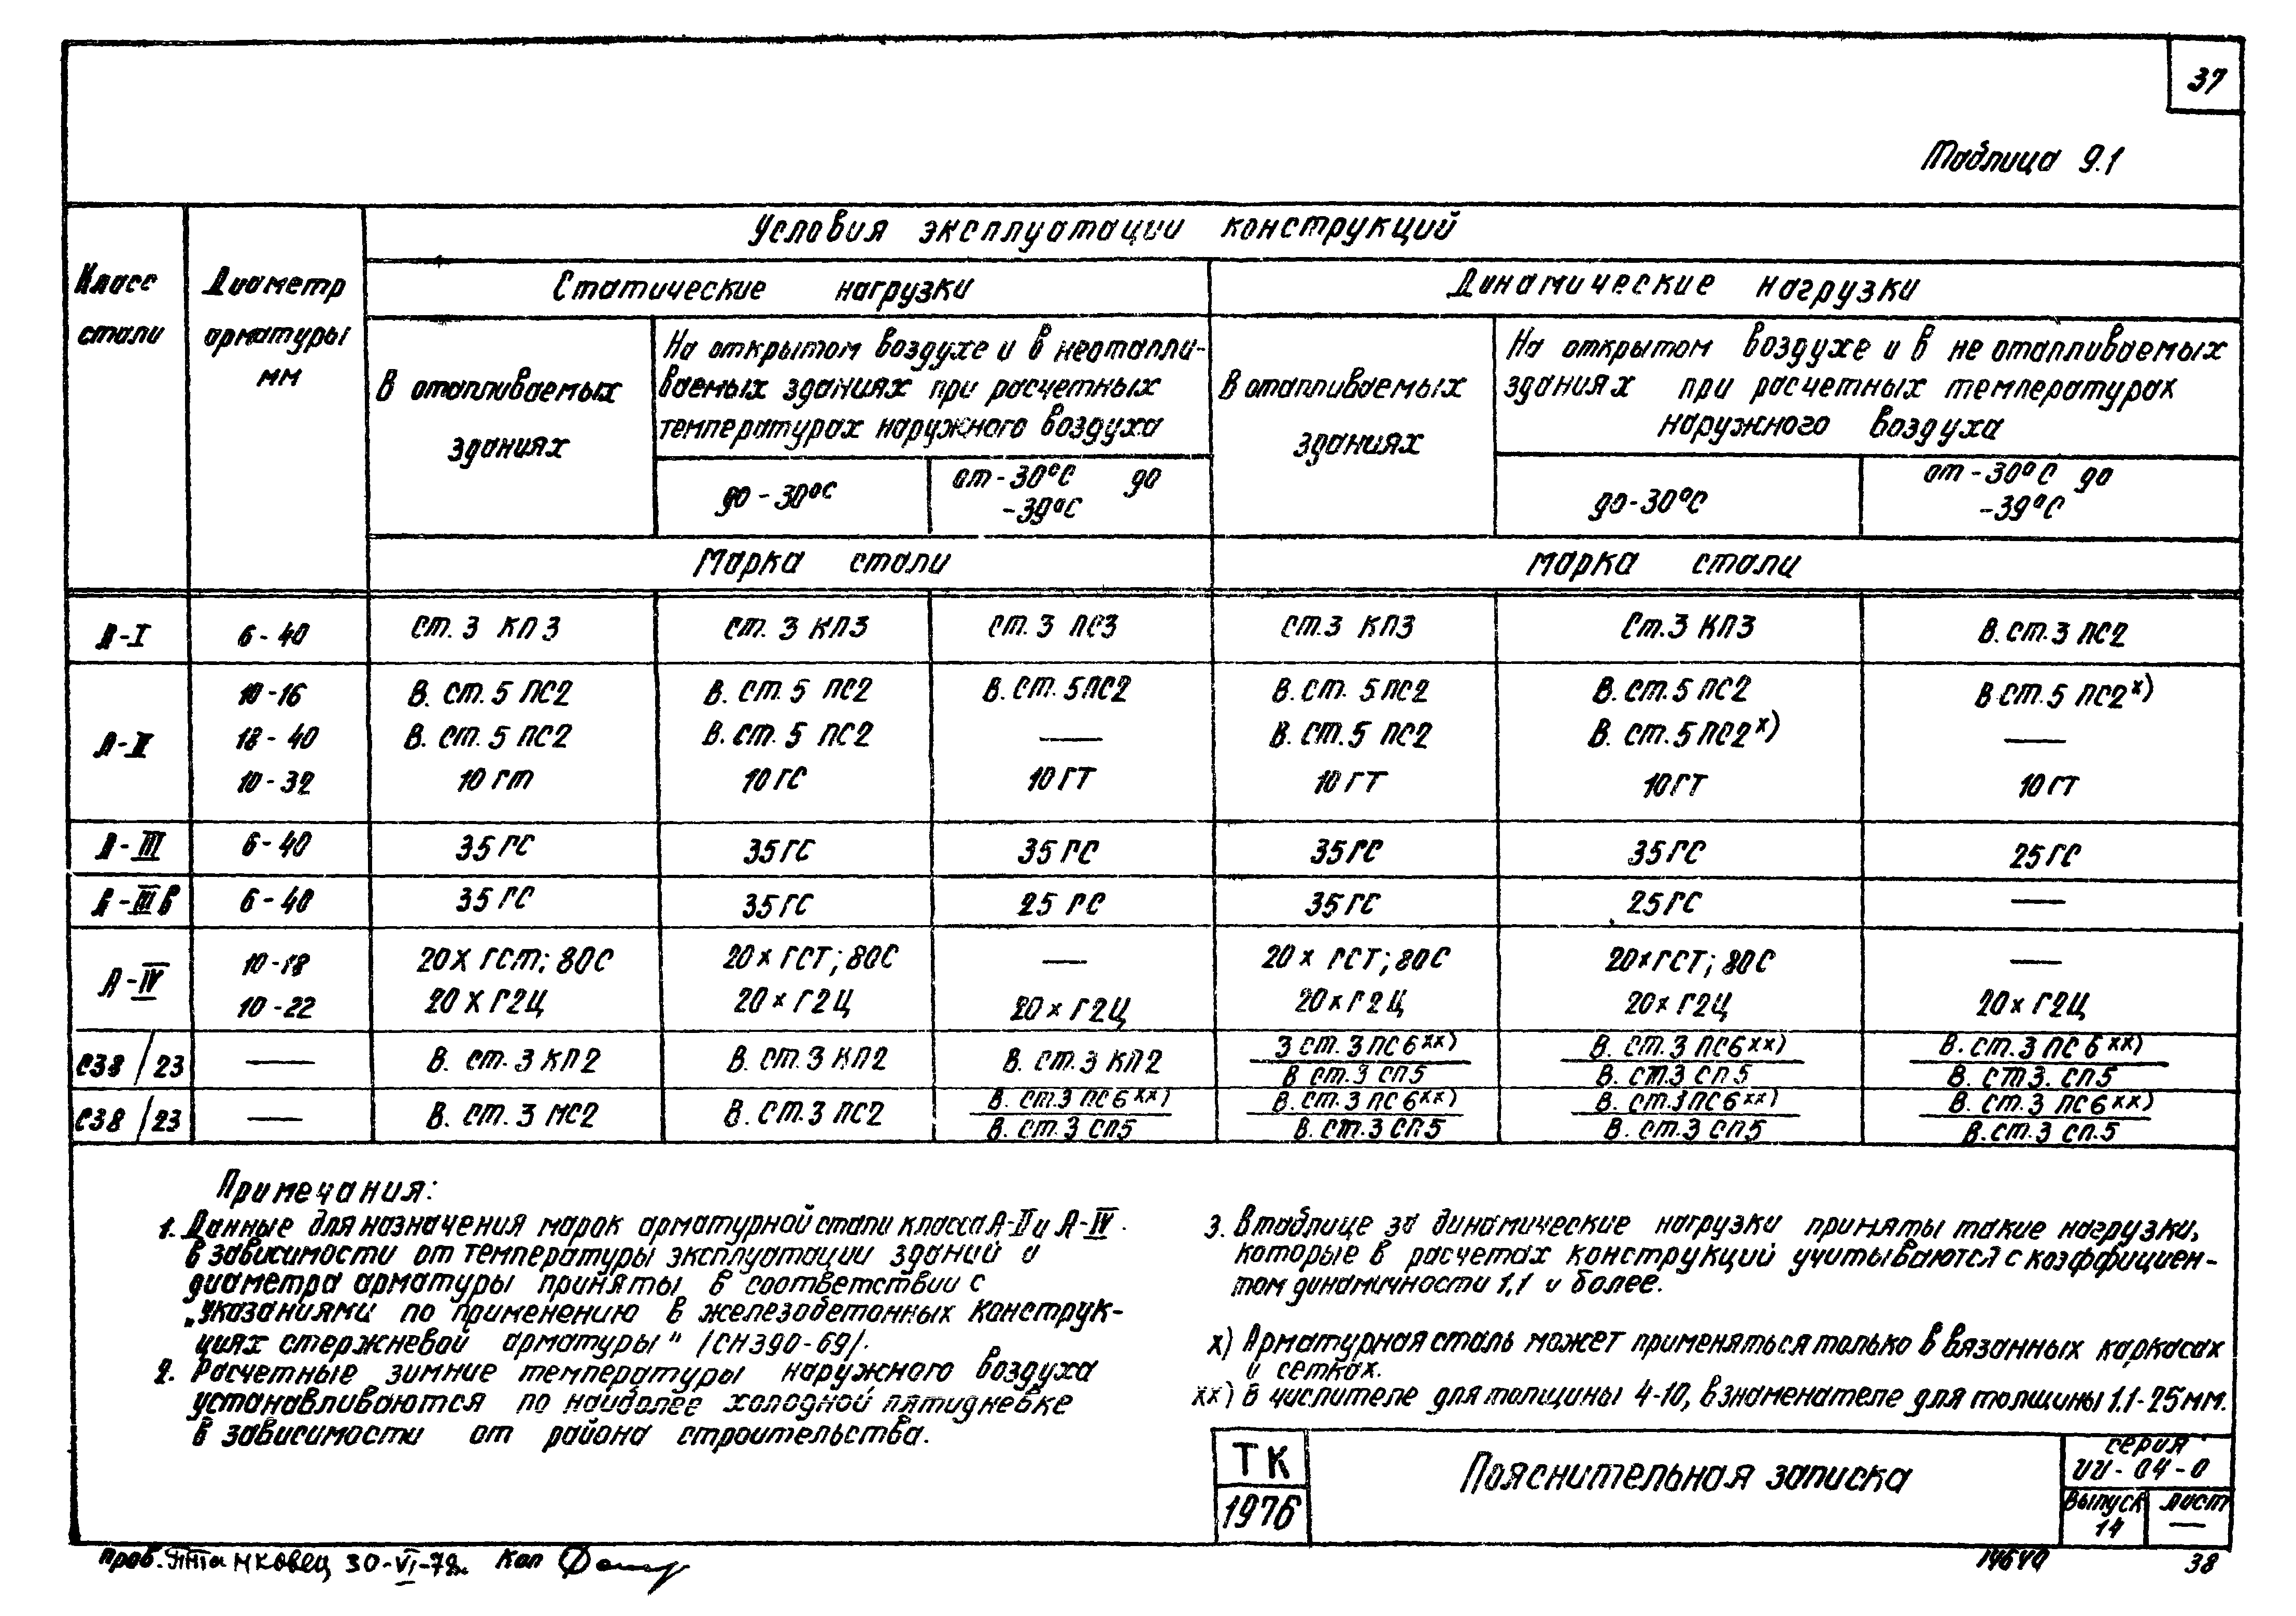 37
Таблица 9.1
Условия эксплуатации конструкций
Класс стали
Диаметр арматуры мм
Статические нагрузки
Динамические нагрузки
В отапливаемых зданиях
На открытом воздухе и в неотапли-
ваемых зданиях при расчетных
температурах наружного воздуха
В отапливаемых зданиях
На открытом воздухе и в не отапливаемых
зданиях при расчетных температурах
наружного воздуха
до -30°С
от -30°С до
-39°С
до -30°С
от -30°С до
-39°С
Марка стали
марка стали
А-I 6-40 ст.3 КП3 ст.3 КП3 ст.3 ПС3 ст.3 КП3 Ст.3 КП3 В.ст.3 ПС2
А-II
10-16 В.ст.5 ПС2 В.ст.5 ПС2 В.ст.5ПС2 В.ст.5ПС2 В.ст.5 ПС2 В ст.5 ПС2х)
18-40 В.ст.5 ПС2 В.ст.5 ПС2 — В.ст.5 ПС2 В.ст.5ПС2х) —
10-32 10 гт 10ГС 10ГТ 10ГТ 10ГТ 10ГТ
А-III 6-40 35ГС 35ГС 35ГС 35ГС 35ГС 25ГС
А-IIIв 6-40 35ГС 35ГС 25ГС 35ГС 25ГС —
А-IV
10-18 20х ГСт; 80С 20х ГСТ; 80С — 20х ГСТ; 80С 20хГСТ; 80С —
10-22 20Х Г2Ц 20х Г2Ц 20х Г2Ц 20х Г2Ц 20х Г2Ц 20х Г2Ц
С38/23 — В. ст.3 КП2 В. ст.3 КП2 В. ст.3 КП2 3 ст.3ПС6хх) В. ст.3 ПС6хх) В.ст.3 ПС6хх)
В ст.3 сп5 В. ст.3 сп5 В. ст3. сп5
С38/23 — В. ст.3 МС2 В.ст.3 ПС2 В. ст.3 ПС6хх) В.ст.3 ПС6хх) В. ст.3ПС6хх) В.ст.3 ПС6хх)
В.ст.3 сп5 В.ст.3 СП5 В. ст.3 сп5 В.ст.3 сп.5
Примечания:
1. Данные для назначения марок арматурной стали класса А-II и А-IV.
в зависимости от температуры эксплуатации зданий и
диаметра арматуры приняты в соответствии с
„указаниями по применению в железобетонных конструк-
циях стержневой арматуры" /СН390-69/.
2. Расчетные зимние температуры наружного воздуха
устанавливаются по наиболее холодной пятидневке
в зависимости от района строительства.
3. В таблице за динамические нагрузки приняты такие нагрузки,
которые в расчетах конструкций учитываются с коэффициен-
том динамичности 1,1 и более.
х) Арматурная сталь может применяться только в вязанных каркасах
и сетках.
хх) в числителе для толщины 4-10, в знаменателе для толщины 11-25мм.
ТК
1976
Пояснительная записка
серия
ИИ-04-0
Выпуск
14
лист
—
пров. 30-VI-78. Коп
14640
38